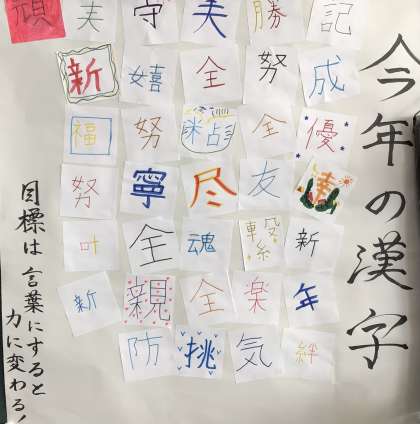 今年の漢字
頑 守 美 勝 記
新 嬉 全 努 成
福 努 粘 全 優
努 寧 尽 友
叶 全 魂 繋 新
新 親 全 楽 年
防 挑 気 絆
目標は言葉にすると
力に変わる!